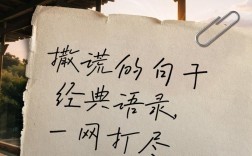 撒谎的句子
经典语录
一网打尽